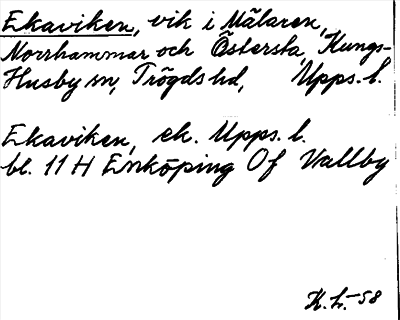 Ekaviken, vik i Mälaren,
Norrhammar och Östersta, Kungs-
Husby sn, Trögds hd, Upps. l.
Ekaviken, ek. Upps. l.
bl. 11 H Enköping Of Vallby
K.L.-58